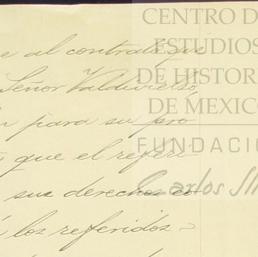 CENTRO D
ESTUDIOS
DE HISTOR
DE MEXICO
FUNDACIÓ
Carlos Sli
e al contrato que
Señor Valdivielso
n para su pro
que el referi
sus derechos
los referidos